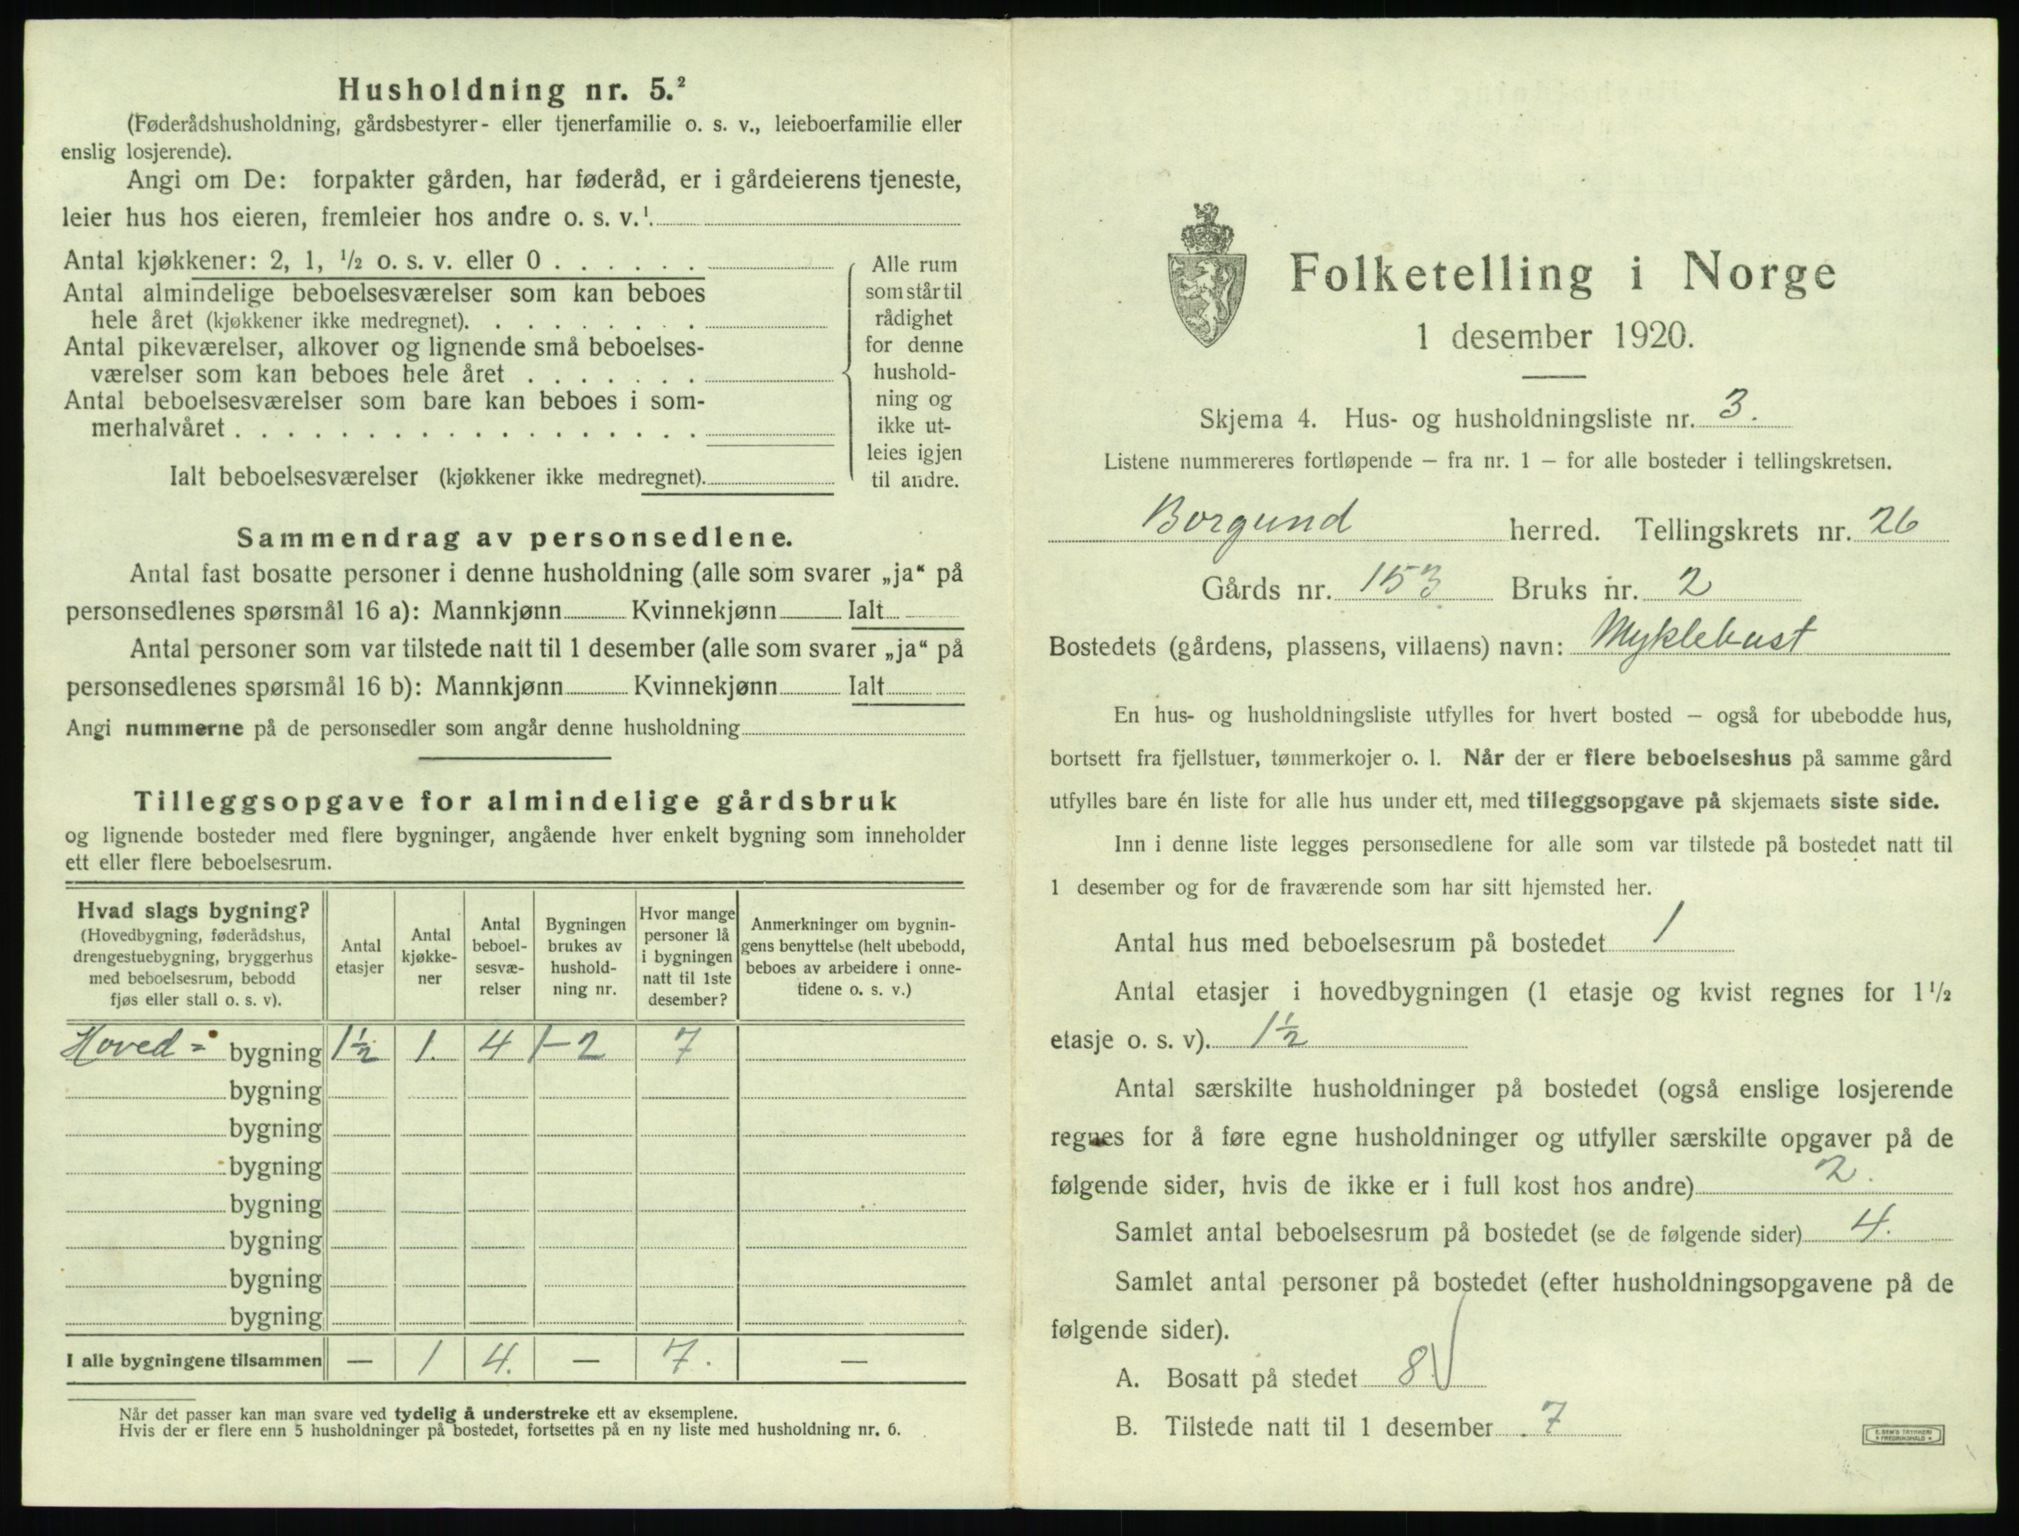 Husholdning nr. 5.²
(Føderådshusholdning, gårdsbestyrer- eller tjenerfamilie o. s. v., leieboerfamilie eller
enslig losjerende).
Angi om De: forpakter gården, har føderåd, er i gårdeierens tjeneste,
leier hus hos eieren, fremleier hos andre o. s. v.¹
Antal kjøkkener: 2, 1, ½ o. s. v. eller 0 . . . . . .
Antal almindelige beboelsesværelser som kan beboes
hele året (kjøkkener ikke medregnet). . . . . . . . .
Antal pikeværelser, alkover og lignende små beboelses-
værelser som kan beboes hele året . . . . . . .
Antal beboelsesværelser som bare kan beboes i som-
merhalvåret . . . . . . . . . . . . . . . . . .
Ialt beboelsesværelser (kjøkkener ikke medregnet).
Alle rum
som står til
rådighet
for denne
hushold-
ning og
ikke ut-
leies igjen
til andre.
Sammendrag av personsedlene.
Antal fast bosatte personer i denne husholdning (alle som svarer „ja“ på
personsedlenes spørsmål 16 a): Mannkjønn Kvinnekjønn Ialt
Antal personer som var tilstede natt til 1 desember (alle som svarer „ja“ på
personsedlenes spørsmål 16 b): Mannkjønn Kvinnekjønn Ialt
Angi nummerne på de personsedler som angår denne husholdning
Tilleggsopgave for almindelige gårdsbruk
og lignende bosteder med flere bygninger, angående hver enkelt bygning som inneholder
ett eller flere beboelsesrum.
Hvad slags bygning?
(Hovedbygning, føderådshus,
drengestuebygning, bryggerhus
med beboelsesrum, bebodd
fjøs eller stall o. s. v).
Antal
etasjer
Antal
kjøkke-
ner
Antal
beboel-
sesvæ-
relser
Bygningen
brukes av
hushold-
ning nr.
Hvor mange
personer lå
i bygningen
natt til 1ste
desember?
Anmerkninger om bygnin-
gens benyttelse (helt ubebodd,
beboes av arbeidere i onne-
tidene o. s. v.)
Hoved= bygning 1½ 1. 4 1-2 7
bygning
bygning
bygning
bygning
bygning
bygning
bygning
I alle bygningene tilsammen — 1 4. — 7. —
Når det passer kan man svare ved tydelig å understreke ett av eksemplene.
Hvis der er flere enn 5 husholdninger på bostedet, fortsettes på en ny liste med husholdning nr. 6.
Folketelling i Norge
1 desember 1920.
Skjema 4. Hus- og husholdningsliste nr. 3.
Listene nummereres fortløpende – fra nr. 1 – for alle bosteder i tellingskretsen.
Borgund herred. Tellingskrets nr. 26
Gårds nr. 153 Bruks nr. 2
Bostedets (gårdens, plassens, villaens) navn: Myklebust
En hus- og husholdningsliste utfylles for hvert bosted – også for ubebodde hus,
bortsett fra fjellstuer, tømmerkojer o. l. Når der er flere beboelseshus på samme gård
utfylles bare én liste for alle hus under ett, med tilleggsopgave på skjemaets siste side.
Inn i denne liste legges personsedlene for alle som var tilstede på bostedet natt til
1 desember og for de fraværende som har sitt hjemsted her.
Antal hus med beboelsesrum på bostedet 1
Antal etasjer i hovedbygningen (1 etasje og kvist regnes for 1½
etasje o. s. v). 1½
Antal særskilte husholdninger på bostedet (også enslige losjerende
regnes for å føre egne husholdninger og utfyller særskilte opgaver på de
følgende sider, hvis de ikke er i full kost hos andre) 2.
Samlet antal beboelsesrum på bostedet (se de følgende sider) 4.
Samlet antal personer på bostedet (efter husholdningsopgavene på de
følgende sider).
A. Bosatt på stedet 8 √
B. Tilstede natt til 1 desember 7
E. SEM'S TRYKKERI
FREDRIKSHALD